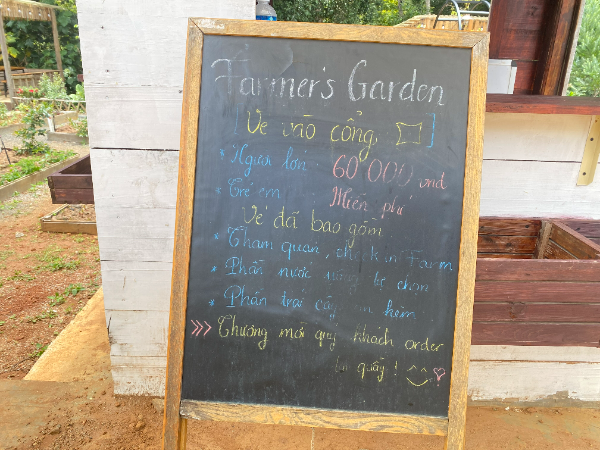 Farmer's Garden
[Vé vào cổng]
* Người lớn : 60'000 vnd
* Trẻ em Miễn phí
Vé đã bao gồm
* Tham quan, Farm
* Phần nước tự chọn
* Phần trái cây kèm
>>> Thương mời quý khách order
tại quầy !